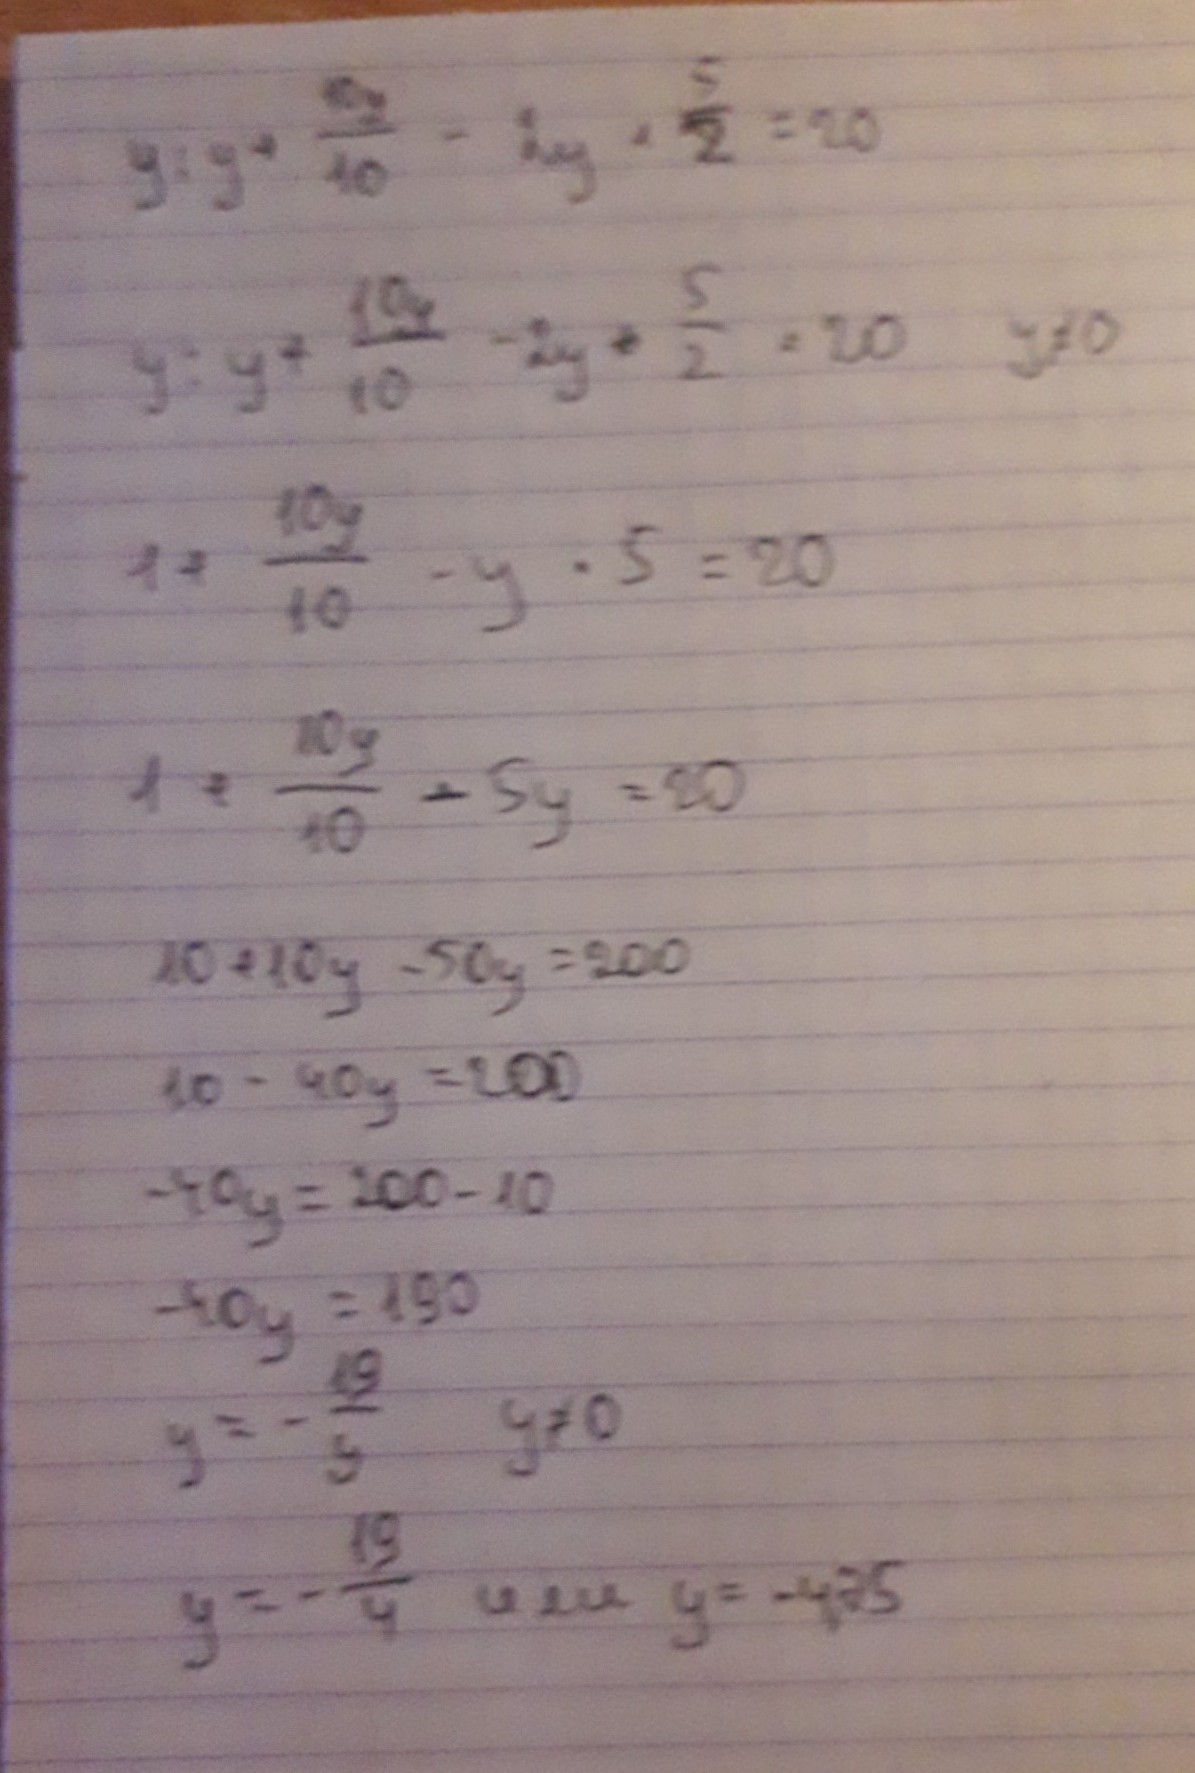 y : y + 10y/10 - 2y · 5/2 = 20
y : y + 10y/10 - 2y · 5/2 = 20 y≠0
1 + 10y/10 - y · 5 = 20
1 + 10y/10 - 5y = 20
10 + 10y - 50y = 200
10 - 40y = 200
-40y = 200 - 10
-40y = 190
y = - 19/4 y≠0
y = - 19/4 или y = -4,75